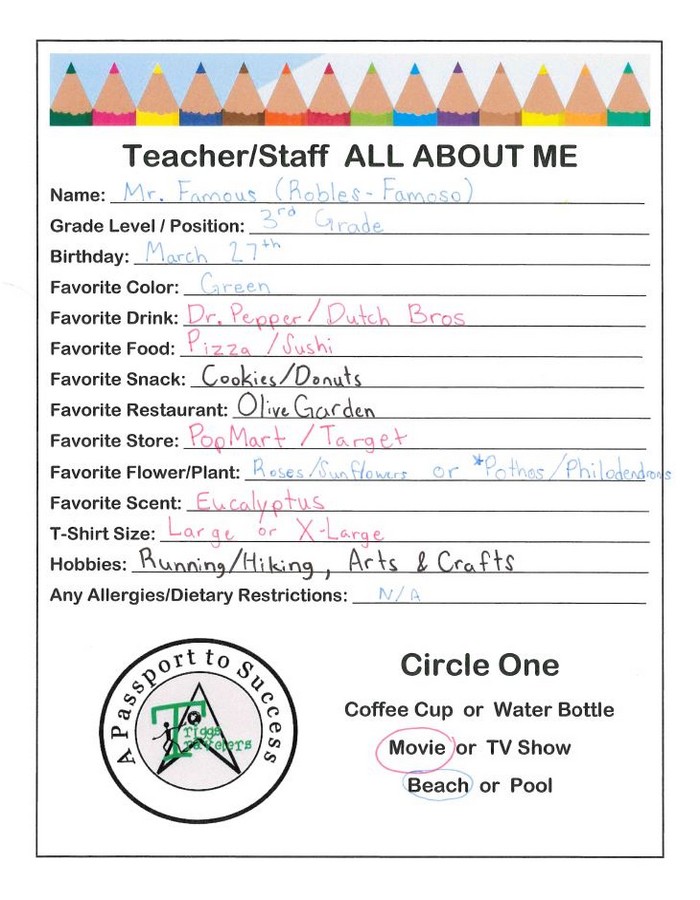 Teacher/Staff ALL ABOUT ME
Name: Mr. Famous (Robles-Famoso)
Grade Level / Position: 3rd Grade
Birthday: March 27th
Favorite Color: Green
Favorite Drink: Dr. Pepper/Dutch Bros
Favorite Food: Pizza /Sushi
Favorite Snack: Cookies/Donuts
Favorite Restaurant: Olive Garden
Favorite Store: PopMart /Target
Favorite Flower/Plant: Roses/Sunflowers or *Pothos/Philodendrons
Favorite Scent: Eucalyptus
T-Shirt Size: Large or X-Large
Hobbies: Running/Hiking, Arts & Crafts
Any Allergies/Dietary Restrictions: N/A
A Passport to Success
Triggs
Travelers
Circle One
Coffee Cup or Water Bottle
Movie or TV Show
Beach or Pool